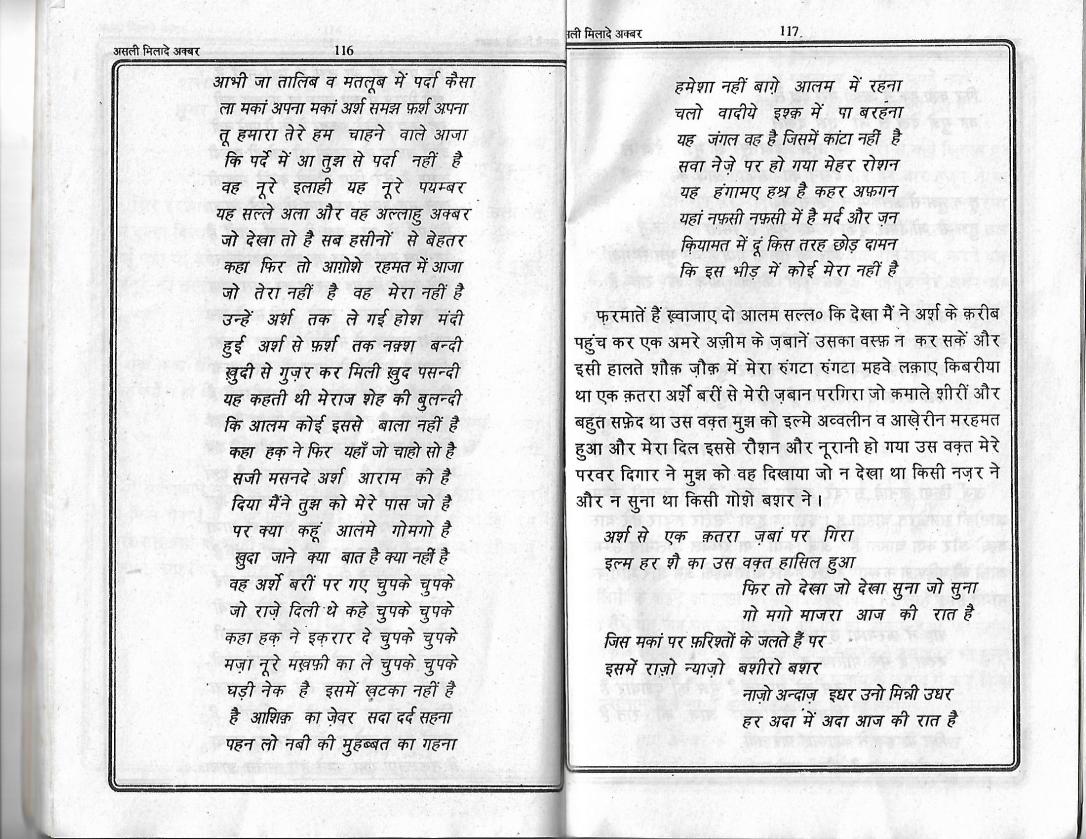 असली मिलादे अक्बर 116
आभी जा तालिब व मतलूब में पर्दा कैसा
ला मकां अपना मकां अर्श समझ फ़र्श अपना
तू हमारा तेरे हम चाहने वाले आजा
कि पर्दे में आ तुझ से पर्दा नहीं है
वह नूरे इलाही यह नूरे पयम्बर
यह सल्ले अला और वह अल्लाहु अक्बर
जो देखा तो है सब हसीनों से बेहतर
कहा फिर तो आग़ोशे रहमत में आजा
जो तेरा नहीं है वह मेरा नहीं है
उन्हें अर्श तक ले गई होश मंदी
हुई अर्श से फ़र्श तक नक़्श बन्दी
ख़ुदी से गुज़र कर मिली ख़ुद पसन्दी
यह कहती थी मेराज शेह की बुलन्दी
कि आलम कोई इससे बाला नहीं है
कहा हक़ ने फिर यहाँ जो चाहो सो है
सजी मसनदे अर्श आराम को है
दिया मैंने तुझ को मेरे पास जो है
पर क्या कहूं आलमे गोमगो है
ख़ुदा जाने क्या बात है क्या नहीं है
वह अर्शे बरीं पर गए चुपके चुपके
जो राज़े दिली थे कहे चुपके चुपके
कहा हक़ ने इक़रार दे चुपके चुपके
मज़ा नूरे मख़फ़ी का ले चुपके चुपके
घड़ी नेक है इसमें खटका नहीं है
है आशिक़ का ज़ेवर सदा दर्द सहना
पहन लो नबी की मुहब्बत का गहना
ली मिलादे अक्बर 117
हमेशा नहीं बाग़े आलम में रहना
चलो वादीये इश्क़ में पा बरहना
यह जंगल वह है जिसमें कांटा नहीं है
सवा नेज़े पर हो गया मेहर रोशन
यह हंगामए हश्र है कहर अफ़गन
यहां नफ़सी नफ़सी में है मर्द और जन
क़ियामत में दूं किस तरह छोड़ दामन
कि इस भीड़ में कोई मेरा नहीं है
फरमातें हैं ख़्वाजाए दो आलम सल्ल० कि देखा मैं ने अर्श के क़रीब
पहुंच कर एक अमरे अज़ीम के ज़बानें उसका वस्फ़ न कर सकें और
इसी हालते शौक़ ज़ौक़ में मेरा रुंगटा रुंगटा महवे लक़ाए किबरीया
था एक क़तरा अर्शे बरीं से मेरी ज़बान परगिरा जो कमाले शीरीं और
बहुत सफ़ेद था उस वक़्त मुझ को इल्मे अव्वलीन व आख़ेरीन मरहमत
हुआ और मेरा दिल इससे रौशन और नूरानी हो गया उस वक़्त मेरे
परवर दिगार ने मुझ को वह दिखाया जो न देखा था किसी नज़र ने
और न सुना था किसी गोशे बशर ने।
अर्श से एक क़तरा ज़बां पर गिरा
इल्म हर शै का उस वक़्त हासिल हुआ
फिर तो देखा जो देखा सुना जो सुना
गो मगो माजरा आज की रात है
जिस मकां पर फ़रिश्तों के जलते हैं पर
इसमें राज़ो न्याज़ो बशीरो बशर
नाज़ो अन्दाज़ इधर उनो मिन्नी उधर
हर अदा में अदा आज की रात है